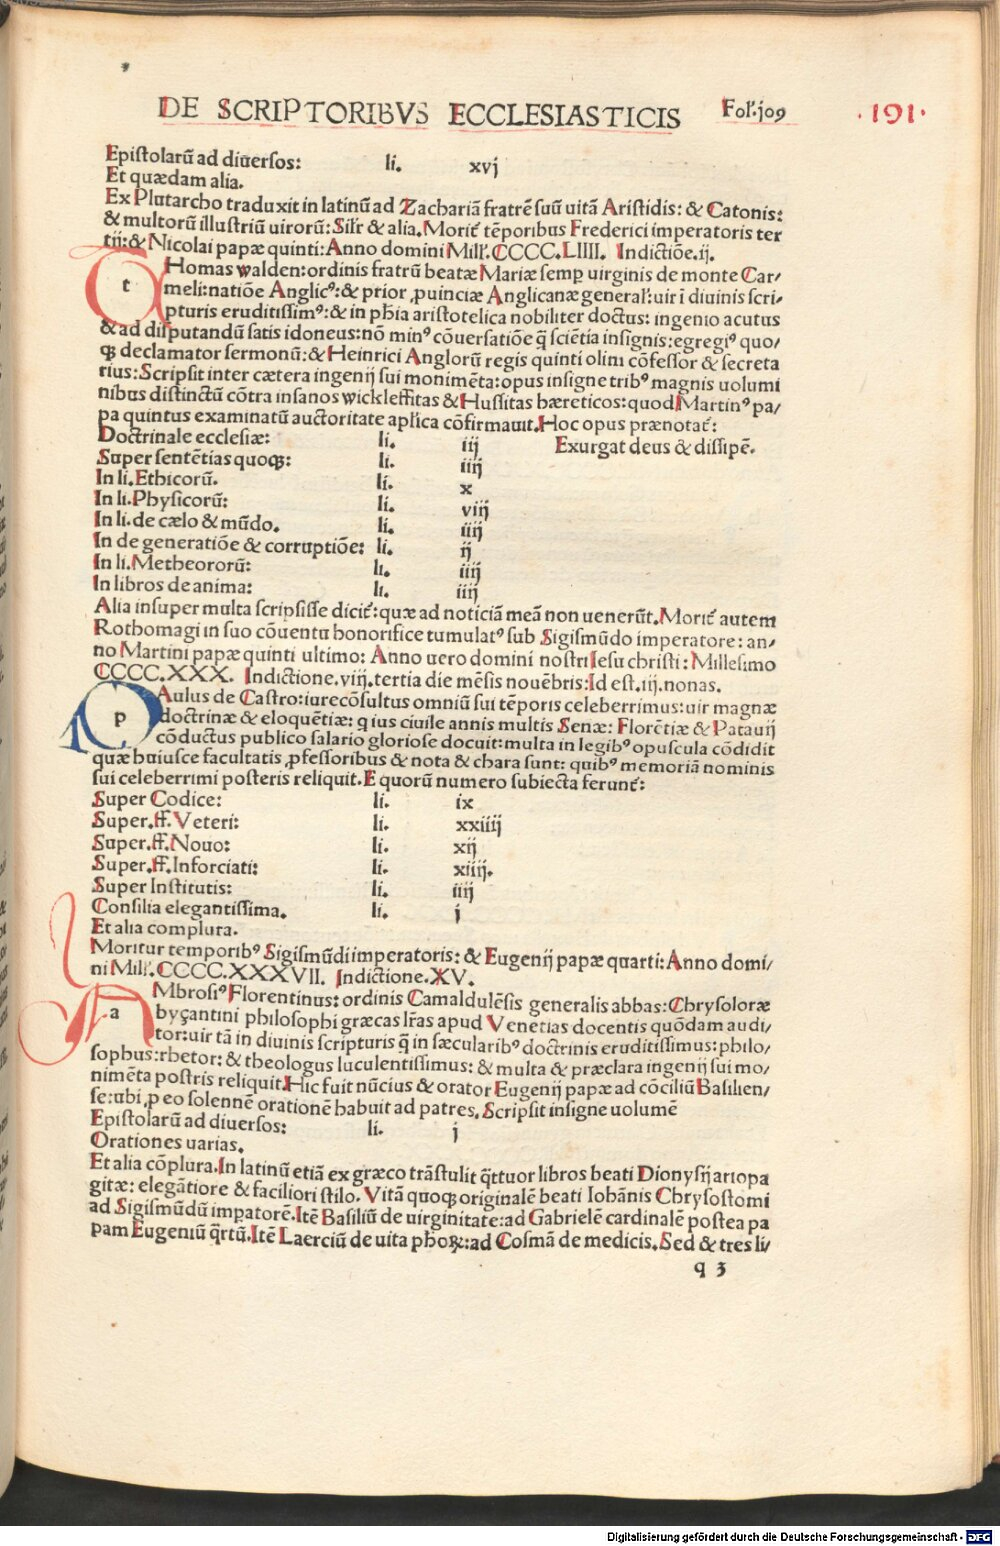 DE SCRIPTORIBVS ECCLESIASTICIS Fol.j09 .191.
Epistolarū ad diuersos: li. xvj
Et quædam alia.
Ex Plutarcho traduxit in latinū ad Zachariā fratrē suū uitā Aristidis: & Catonis:
& multorū illustriū uirorū: Silr & alia. Morit᷑ tēporibus Frederici imperatoris ter
tij: & Nicolai papæ quinti: Anno domini Mill'. CCCC. LIIII. Indictiōe. ij.
t Homas walden: ordinis fratrū beatæ Mariæ semp uirginis de monte Car-
meli: natiōe Anglicꝰ: & prior ,puinciæ Anglicanæ general': uir ī diuinis scri-
pturis eruditissimꝰ: & in phia aristotelica nobiliter doctus: ingenio acutus
& ad disputandū satis idoneus: nō minꝰ cōuersatiōe q̄ sciētia insignis: egregiꝰ quo-
qꝫ declamator sermonū: & Heinrici Anglorū regis quinti olim cōfessor & secreta
rius: Scripsit inter cætera ingenij sui monimēta: opus insigne tribꝰ magnis uolumi
nibus distinctū cōtra insanos wickleffitas & Hussitas hæreticos: quod Martinꝰ pa-
pa quintus examinatū auctoritate aplica cōfirmauit. Hoc opus prænotat᷑:
Doctrinale ecclesiæ: li. iij Exurgat deus & dissipē.
Super sentētias quoqꝫ: li. iiij
In li. Ethicorū. li. x
In li. Physicorū: li. viij
In li. de cælo & mūdo. li. iiij
In de generatiōe & corruptiōe: li. ij
In li. Metheororū: li. iiij
In libros de anima: li. iiij
Alia insuper multa scripsisse dicit᷑: quæ ad noticiā meā non uenerūt. Morit᷑ autem
Rothomagi in suo cōuentu honorifice tumulatꝰ sub Sigismūdo imperatore: an-
no Martini papæ quinti ultimo: Anno uero domini nostri Iesu christi: Millesimo
CCCC. XXX. Indictione. viij. tertia die mēsis nouēbris: Id est. iij. nonas.
p Aulus de Castro: iurecōsultus omniū sui tēporis celeberrimus: uir magnæ
doctrinæ & eloquētiæ: q ius ciuile annis multis Senæ: Florētiæ & Patauij
cōductus publico salario gloriose docuit: multa in legibꝰ opuscula cōdidit
quæ huiusce facultatis ,pfessoribus & nota & chara sunt: quibꝰ memoriā nominis
sui celeberrimi posteris reliquit. E quorū numero subiecta ferunt᷑:
Super Codice: li. ix
Super. ff. Veteri: li. xxiiij
Super. ff. Nouo: li. xij
Super. ff. Inforciati: li. xiiij.
Super Institutis: li. iiij
Consilia elegantissima. li. j
Et alia complura.
Moritur temporibꝰ Sigismūdi imperatoris: & Eugenij papæ quarti: Anno domi-
ni Mill'. CCCC. XXXVII. Indictione. XV.
a Mbrosiꝰ Florentinus: ordinis Camaldulēsis generalis abbas: Chrysoloræ
byçantini philosophi græcas lr̄as apud Venetias docentis quōdam audi-
tor: uir tā in diuinis scripturis q̄ in sæcularibꝰ doctrinis eruditissimus: philo-
sophus: rhetor: & theologus luculentissimus: & multa & præclara ingenij sui mo-
nimēta postris reliquit. Hic fuit nūcius & orator Eugenij papæ ad cōciliū Basilien-
se: ubi ,p eo solennē orationē habuit ad patres. Scripsit insigne uolumē
Epistolarū ad diuersos: li. j
Orationes uarias.
Et alia cōplura. In latinū etiā ex græco trāstulit q̄ttuor libros beati Dionysij ariopa
gitæ: elegātiore & faciliori stilo. Vitā quoqꝫ originalē beati Iohānis Chrysostomi
ad Sigismūdū impatorē. Itē Basiliū de uirginitate: ad Gabrielē cardinalē postea pa
pam Eugeniū q̄rtū. Itē Laerciū de uita phoꝝ: ad Cosmā de medicis. Sed & tres li-
q 3
Digitalisierung gefördert durch die Deutsche Forschungsgemeinschaft - DFG